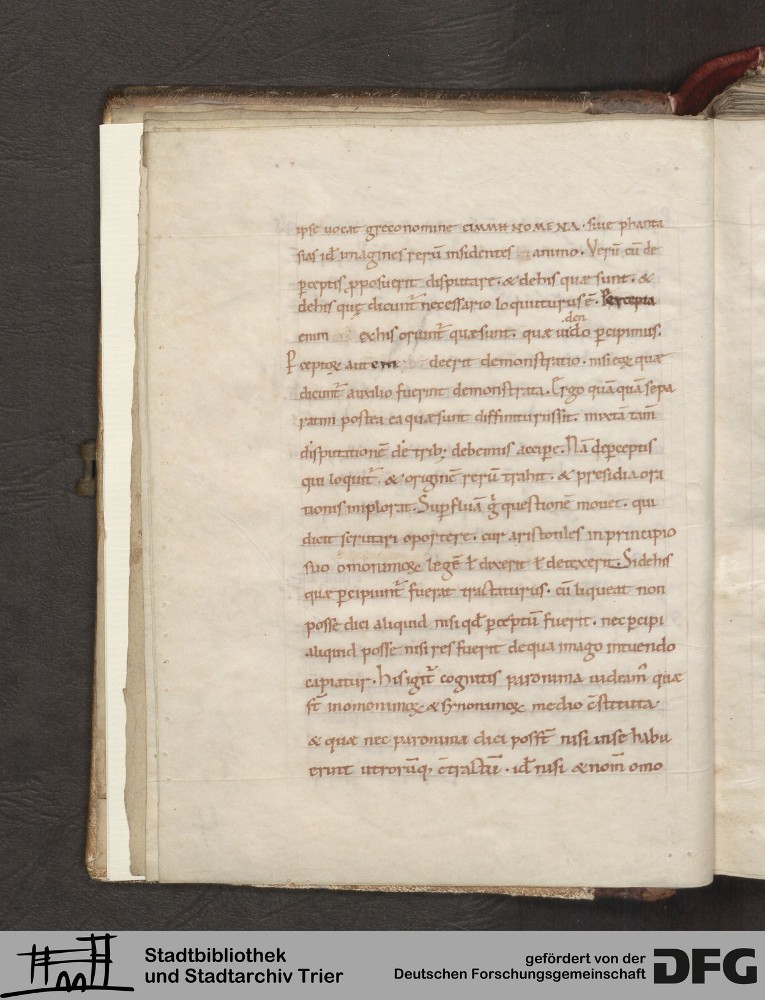 ipse uocat greco nomine CIMMHNOMENA. siue phanta
sias id̄ imagines rerū insidentes animo. Verū cū de
ꝑceptis ꝓposuerit disputare. & de his quæ sunt. &
de his quę dicunt̄ necessario loquiturus ē. Percepta
enim ex his oriunt̄ quæ sunt. quæ uidendo ꝑcipimus.
Pceptoꝝ autem deerit demonstratio. nisi eoꝝ quæ
dicunt̄ auxilio fuerint demonstrata. Ergo quāquā sepa
ratim postea ea quæ sunt diffiniturus sit. mixtā tam̄
disputationē de trib; debemus accipe. Nā de ꝑceptis
qui loquit̄. & originē rerū trahit. & presidia ora
tionis implorat. Supfluā g̊ questionē mouet. qui
dicit scrutari oportere. cur aristotiles in principio
suo omonimoꝝ legē ł dixerit ł detexerit. Si de his
quæ ꝑcipiunt̄ fuerat tractaturus. cū liqueat non
posse dici aliquid nisi qđ ꝑceptū fuerit. nec ꝑcipi
aliquid posse nisi res fuerit de qua imago intuendo
capiatur. His igit̄ cognitis paronima uideam̄ quæ
st̄ in omonimoꝝ & synonimoꝝ medio c̄stituta.
& quæ nec paronima dici possт̄ nisi in se habu
erint utrorūq; c̄tractū. id̄ nisi & nom̄ omo
Stadtbibliothek
und Stadtarchiv Trier
gefördert von der
Deutschen Forschungsgemeinschaft
DFG